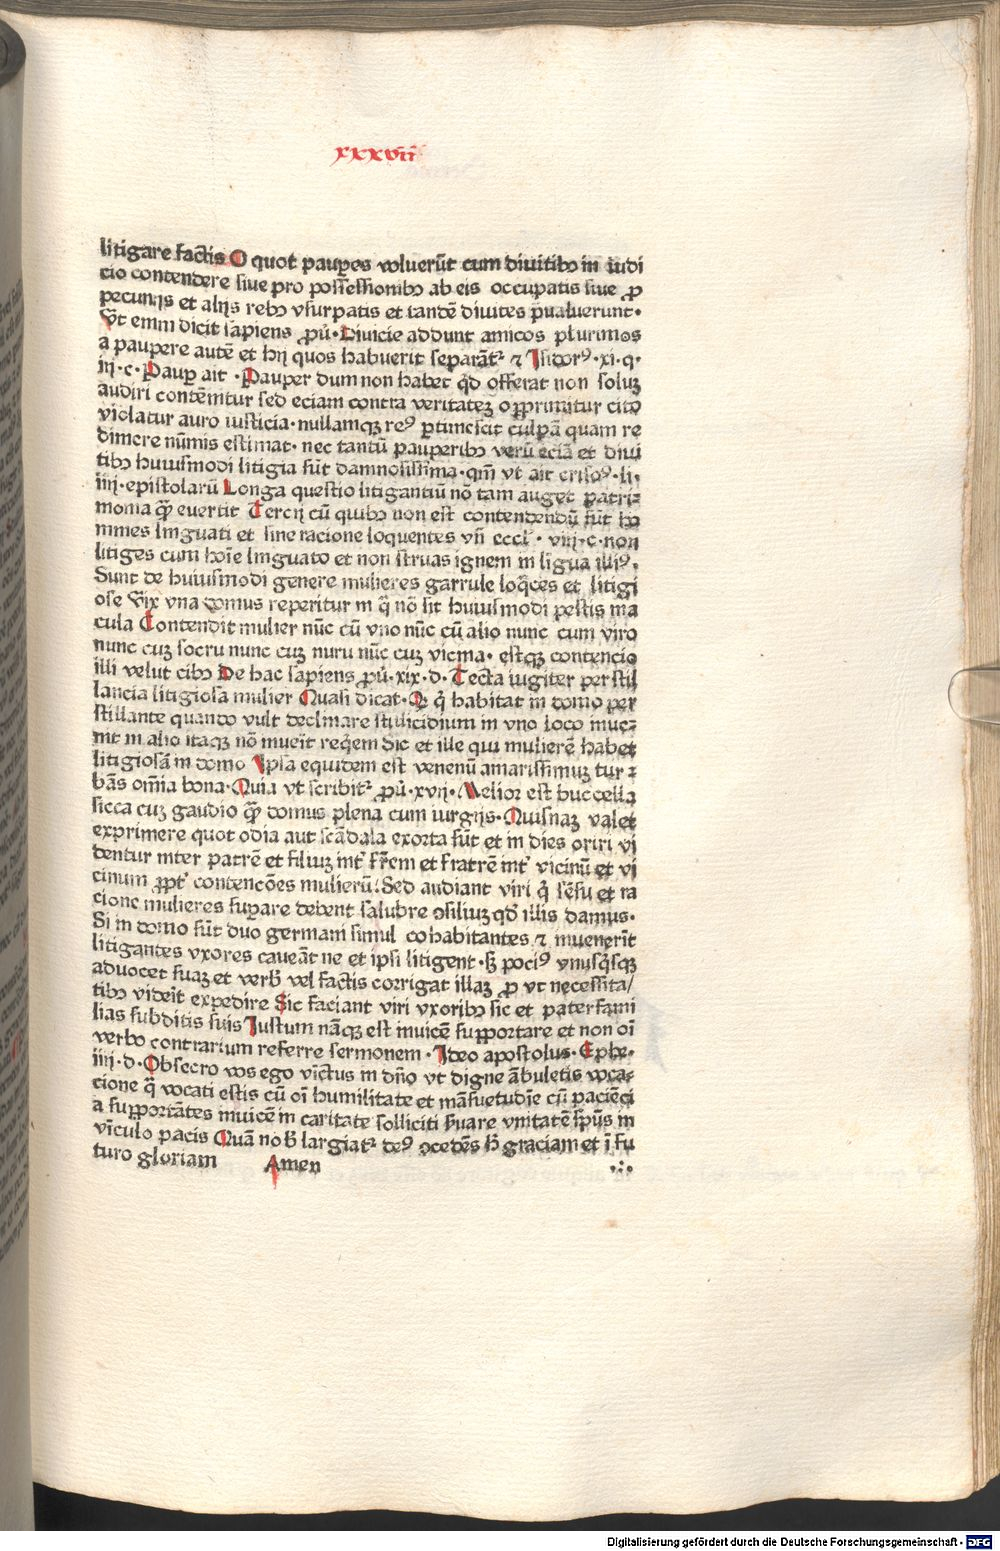 xxxvii
litigare factis O quot pauꝑes voluerūt cum diuitibꝫ in iudi
cio contendere siue pro possessionibꝫ ab eis occupatis siue ꝓ
pecunijs et alijs rebꝫ vsurpatis et tandē diuites p̄ualuerunt·
Vt enim dicit sapiens ꝓū·Diuicie addunt amicos plurimos
a paupere autē et hij quos habuerit separāt᷑ ⁊ Isidorꝰ·xi·q·
iij·c·Pauꝑ ait ·Pauper dum non habet qd̄ offerat non soluꝫ
audiri contēnitur sed eciam contra veritateꝫ opprimitur cito
violatur auro iusticia·nullamqꝫ reꝰ ꝑtimescit culpā quam re
dimere nūmis estimat· nec tantū pauperibꝫ verū eciā et diui
tibꝫ huiusmodi litigia sūt damnosissima·qm̄ vt ait crisoꝰ·li·
iiij·epistolarū Longa questio litigantiū nō tam auget patri⸗
monia qͣꝫ euertit Tercij cū quibꝫ non est contendendū sūt ho
mines linguati et sine racione loquentes vn̄ eccl̄i · viij·c·non
litiges cum hoīe linguato et non struas ignem in lingua illiꝰ·
Sunt de huiusmodi genere mulieres garrule loq̄ces et litigi
ose Vix vna domus reperitur in q̄ nō sit huiusmodi pestis ma
cula Contendit mulier nūc cū vno nūc cū alio nunc cum viro
nunc cuꝫ socru nunc cuꝫ nuru nūc cuꝫ vicina· estqꝫ contencio
illi velut cibꝫ De hac sapiens ꝓū·xix·d·Tecta iugiter per stil
lancia litigiosa mulier Quasi dicat·Q q̇ habitat in domo per
stillante quando vult declinare stillicidium in vno loco inue⸗
nit in alio itaqꝫ nō inueīt req̇em sic et ille qui mulierē habet
litigiosā in domo Ipsa equidem est venenū amarissimuꝫ tur⸗
bās om̄ia bona·Quia vt scribit᷑ ꝓū·xvij·Melior est buccella
sicca cuꝫ gaudio qͣꝫ domus plena cum iurgijs·Quisnaꝫ valet
exprimere quot odia aut scādala exorta sūt et in dies oriri vi
dentur inter patrē et filiuꝫ int̄ fr̄em et fratrē int̄ vicinū et vi
cinum ꝓpt̄ contencōes mulierū·Sed audiant viri q̇ sēsu et ra
cione mulieres suꝑare debent salubre ꝯsiliuꝫ qd̄ illis damus·
Si in domo sūt duo germani simul cohabitantes ⁊ inuenerīt
litigantes vxores caueāt ne et ipsi litigent·sꝫ pociꝰ vnusq̇sqꝫ
aduocet suaꝫ et verb̄ vel factis corrigat illaꝫ ꝓ vt necessita/
tibꝫ videīt expedire Sic faciant viri vxoribꝫ sic et paterfami
lias subditis suis Iustum nāqꝫ est inuicē supportare et non oī
verbo contrarium referre sermonem ·Ideo apostolus·Ephe·
iiij·d·Obsecro vos ego vīctus in dn̄o vt digne ābuletis voca⸗
cione q̄ vocati estis cū oī humilitate et māsuetudīe cū paciēci
a supportātes inuicē in caritate solliciti ẜuare vnitatē sp̄us in
vīculo pacis Quā nob̄ largiat᷑ deꝰ ꝯcedēs h̄ graciam et ī fu
turo gloriam Amen
Digitalisierung gefördert durch die Deutsche Forschungsgemeinschaft - DFG